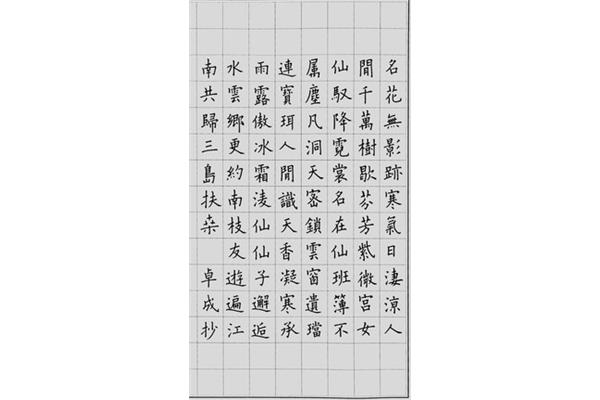 名花無影跡寒氣日淒涼人
閒千萬樹歇芬芳紫微宮女
仙馭降霓裳名在仙班簿不
属塵凡洞天密鎖雲窗遺璫
連寶珥人閒識天香凝寒承
雨露傲冰霜淩仙仙子邂逅
水雲鄉更約南枝友遊遍江
南共歸三島扶桑 卓成抄